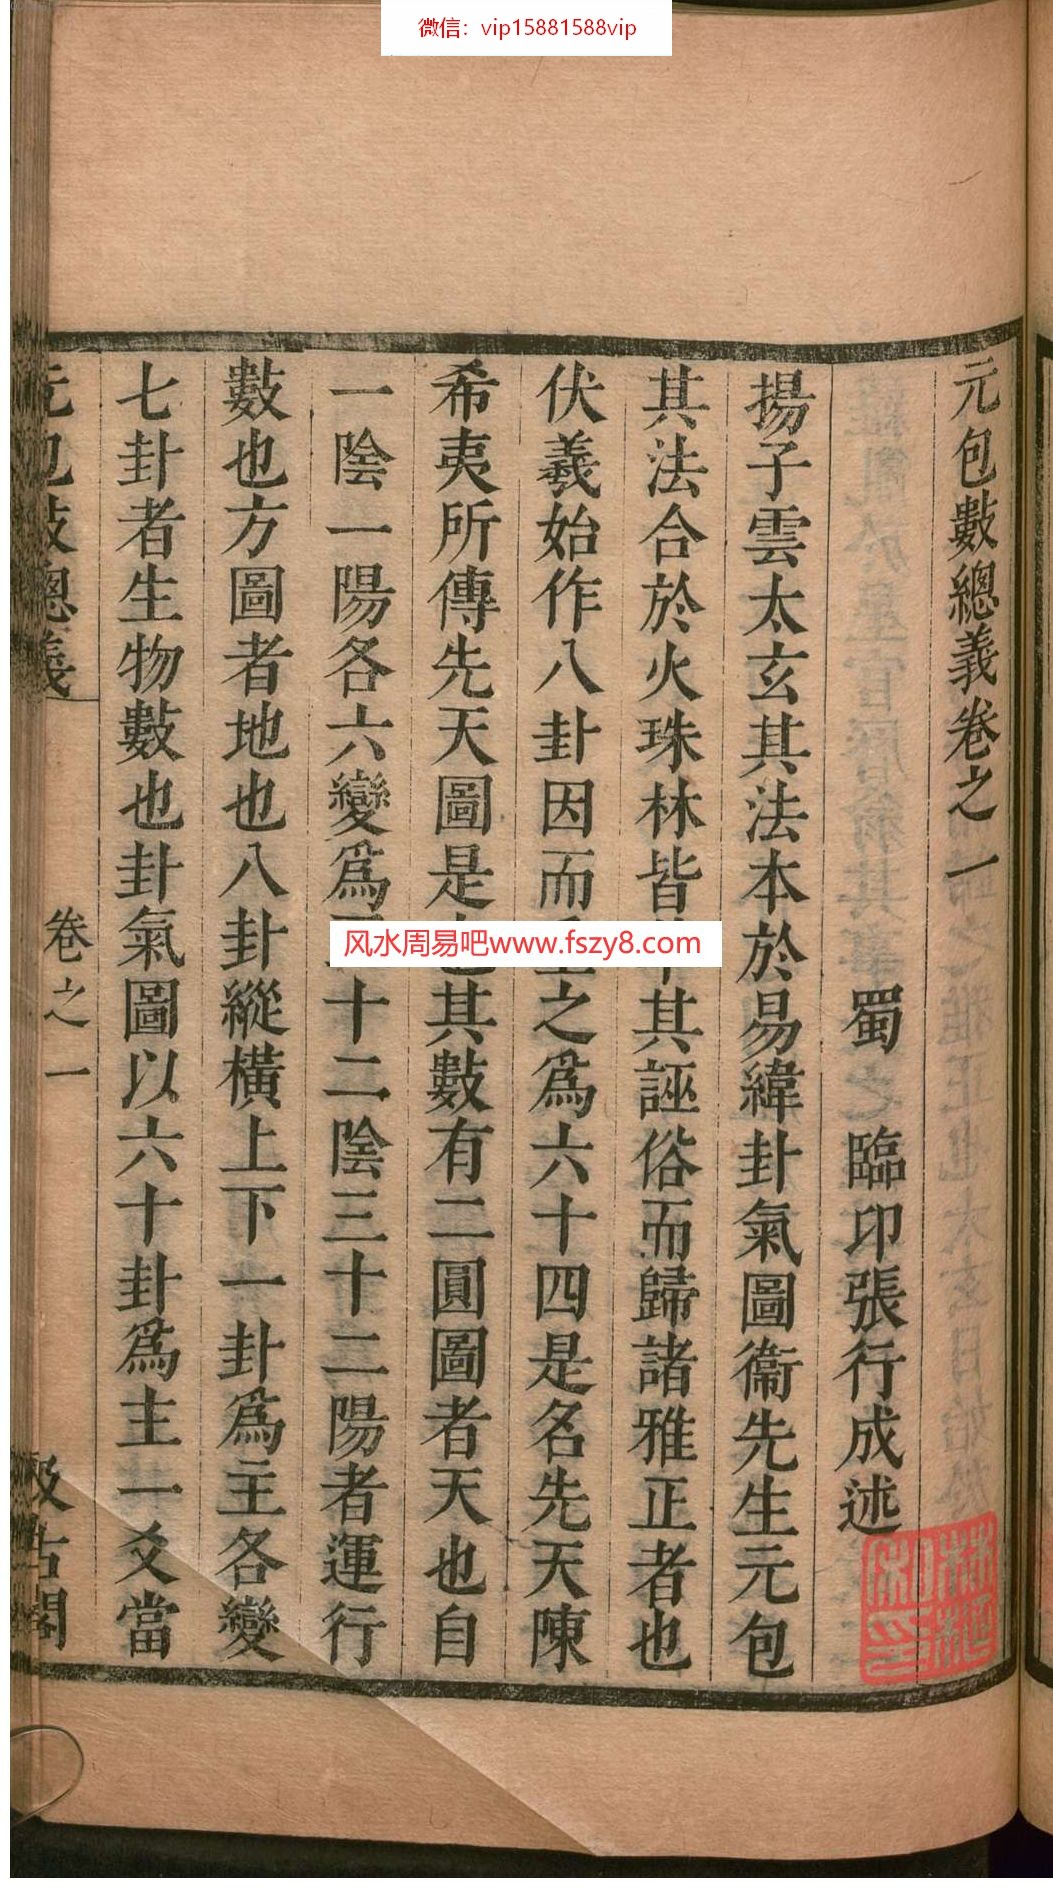 微信：vip15881588vip
元包數總義卷之一
蜀 臨卭張行成述
揚子雲太玄其法本於易緯卦氣圖衞先生元包
其法合於火珠林皆其誣俗而歸諸雅正者也
伏羲始作八卦因而之爲六十四是名先天陳
希夷所傳先天圖是其數有二圓圖者天也自
一陰一陽各六變爲十二陰三十二陽者運行
數也方圖者地也八卦縱橫上下一卦爲主各變
七卦者生物數也卦氣圖以六十卦爲主一爻當
元包數總義
卷之一
汲古閣
风水周易吧www.fszy8.com